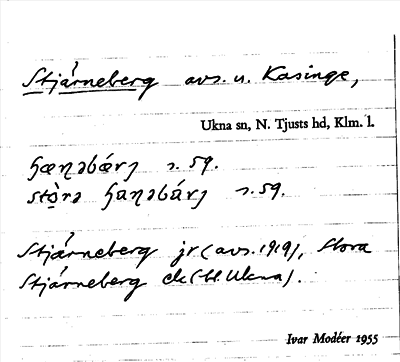 Stjärneberg avs. u. Kasinge,
Ukna sn, N. Tjusts hd, Klm. l.
ɧæɳəbǽrj ɿ. 59.
stò̤rə ɧaɳəbárj ɿ. 59.
Stjärneberg jr (avs. 1919), Stora
Stjärneberg ek (bl. Ukna).
Ivar Modéer 1955